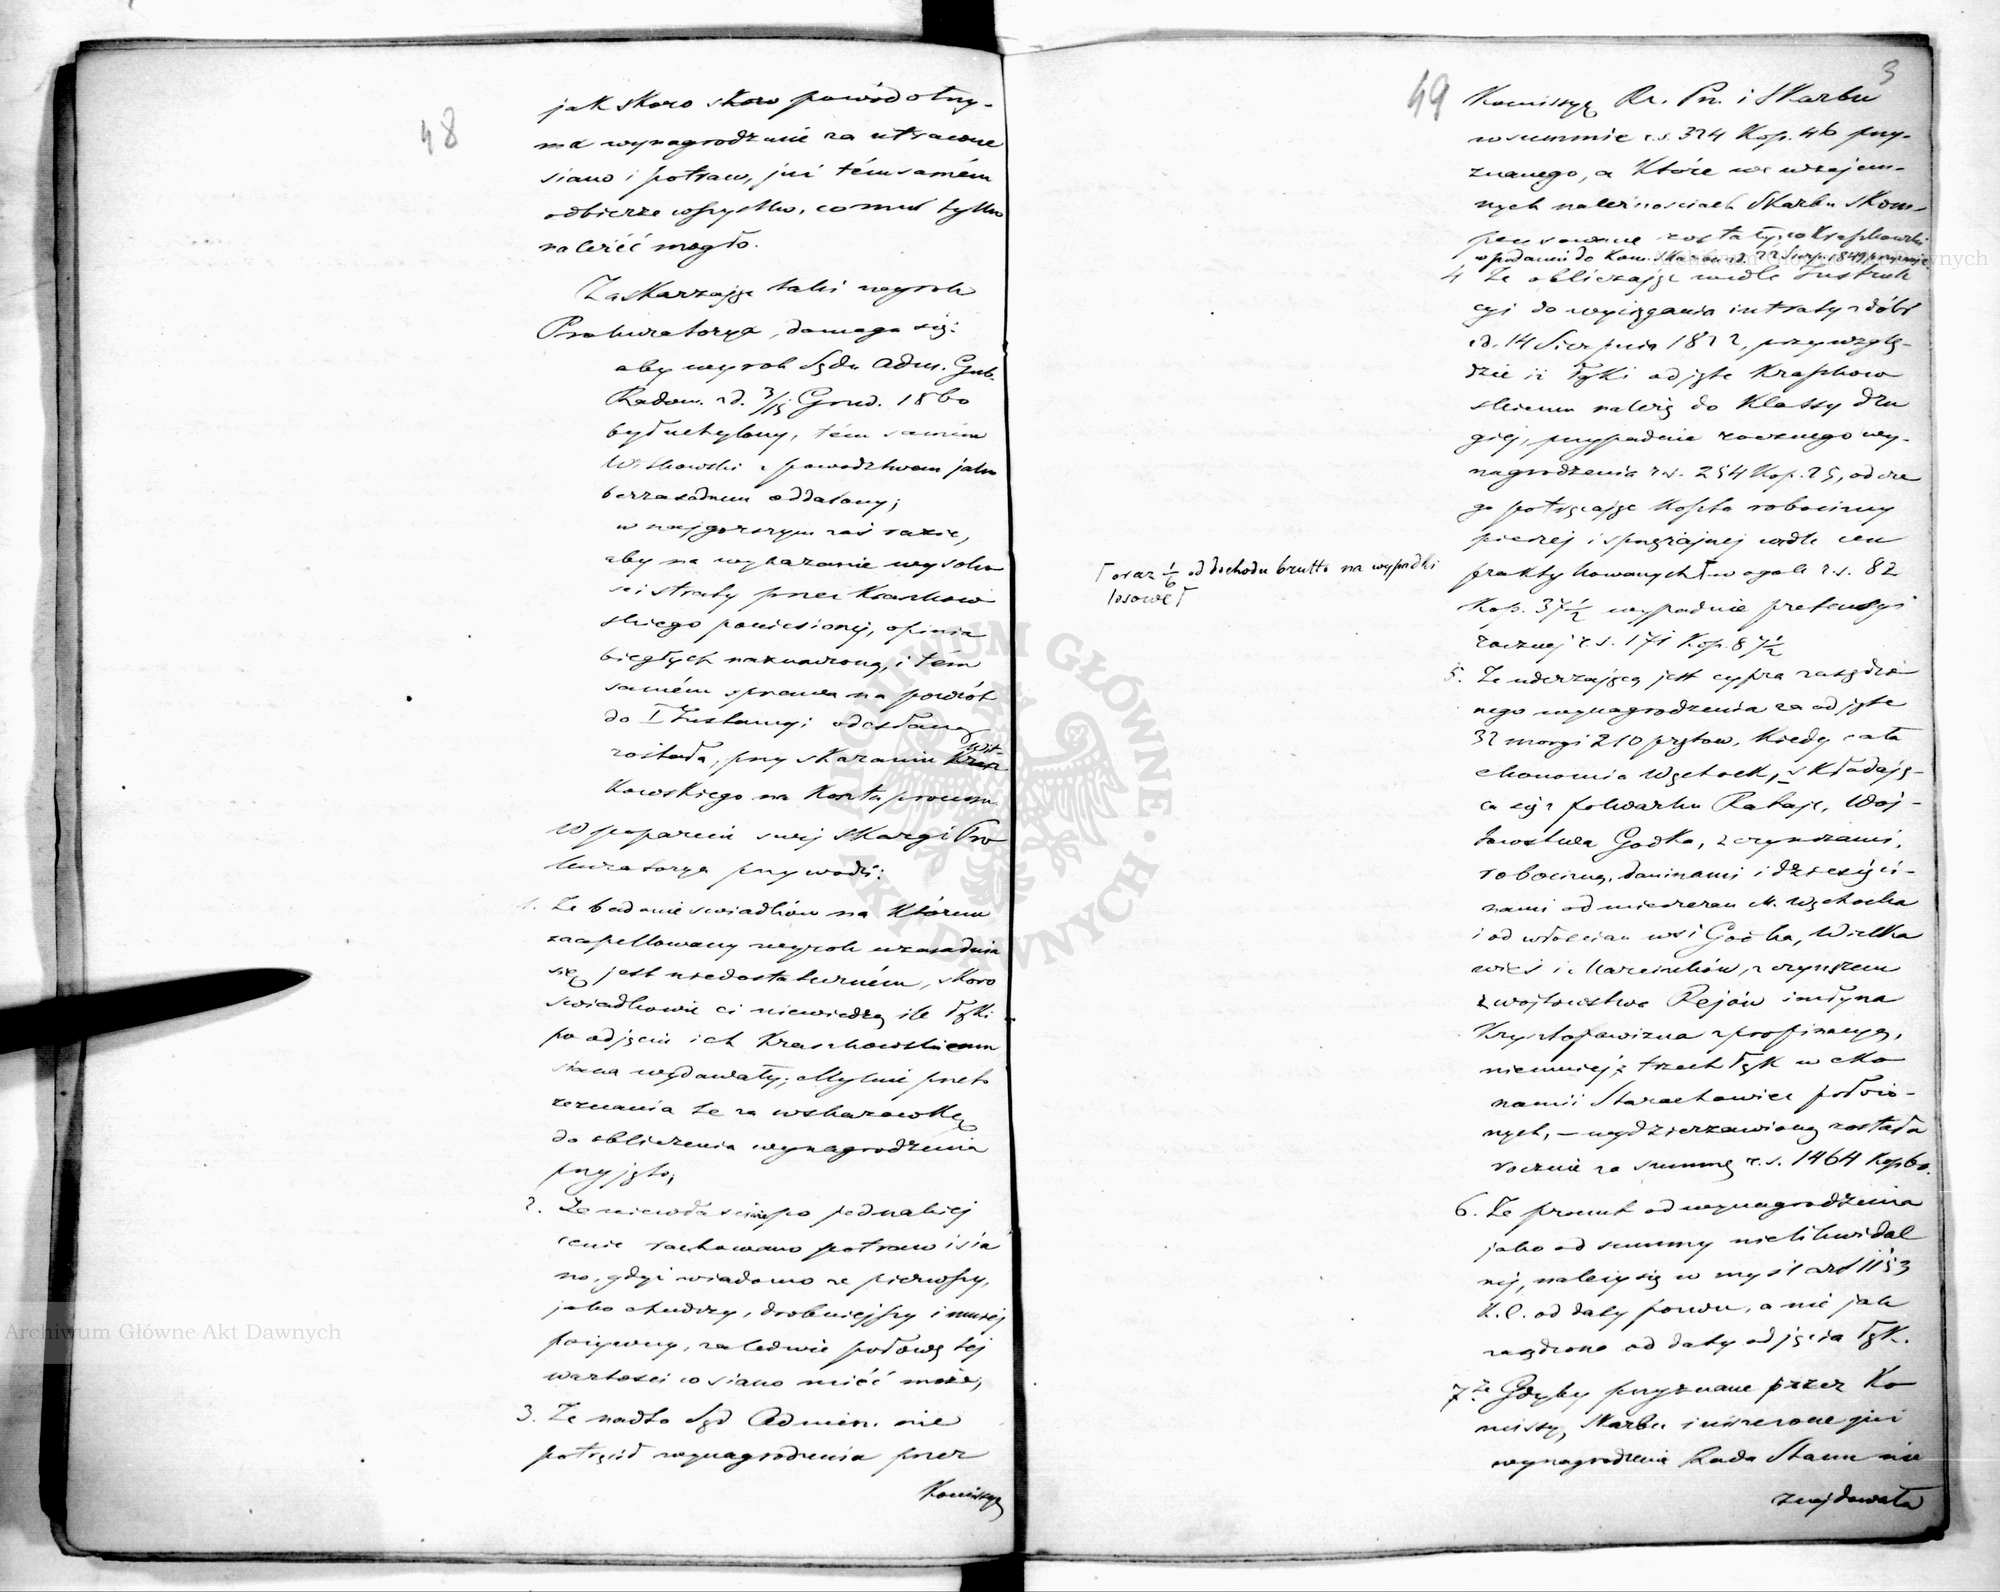 48
jak skoro skoro powód otrzy-
ma wynagrodzenie za utracone
siano i potraw, już tém samém
odbierze wszystko, co mu tylko
należéć mogło.
Zaskarżając taki wyrok
Prokuratorya, domaga się:
aby wyrok Sądu Adm. Gub.
Radom. z d. 3/15 Grud. 1860
był uchylony, tém samém
Witkowski z powództwem jako
bezzasadnem oddalony;
w najgorszym zaś razie,
aby na wykazanie wysoko-
ści straty przez Kraskow
skiego poniesionéj, opinia
biegłych naznaczoną, i tém
samém sprawa na powrót
do I Instancyi odesłaną
została, przy skazaniu Wit-
kowskiego na koszta procesu.
W poparciu swéj skargi Pro
kuratorya przywodzi:
1. Że badanie swiadków na którém
zaapellowany wyrok uzasadnia
się, jest niedostateczném, skoro
swiadkowie ci niewiedzą ile łąki
po odjęciu ich Kraskowskiemu
siana wydawały; Mylnie przeto
zeznania te za wskazówkę
do obliczenia wynagrodzenia
przyjęto;
2. Że niewłaściwie po jednakiéj
cenie rachowano potraw i sia
no, gdyż wiadomo że pierwszy,
jako chudszy, drobniejszy i mniéj
pożywny, zaledwie połowę téj
wartości co siano miéć może;
3. Że nadto Sąd Admin. nie
potrącił wynagrodzenia przez
Komissyą
3
49
Komissyą Rz. Prz. i Skarbu
w summie r.s. 324 kop. 46 przy-
znanego, a które we wzajem-
nych należnościach Skarbu skom-
pensowane zostały, co Kraskowski
w podaniu do Kom. Skarbu d. 22 Sierp. 1849 przyznaje.
4 Że obliczając wedle Instruk
cyi do wyciągania intraty z dóbr
z d. 14 Sierpnia 1822, przy wzglę-
dzie iż łąki odjęte Kraskow
skiemu należą do klassy dru
giéj, przypadnie rocznego wy-
nagrodzenia r.s. 254 kop. 25, od cze
go potrącając koszta robocizny
pieszéj i sprzężajnéj wedle cen
praktykowanych ⌈ w ogóle r.s. 82
⌈ oraz 1/6 od dochodu brutto na wypadki
losowe ⌈
kop. 37½ wypadnie pretensyi
rocznéj r.s. 171 kop. 87½
5. Że uderzającą jest cyfra zasądzo
nego wynagrodzenia za odjęte
32 morgi 210 prętów, kiedy cała
ekonomia Wąchock, – składają-
ca się z folwarku Rataje, Wój-
towstwa Godka, z czynszami,
robocizną, daninami i dziesięci-
nami od mieszczan M. Wąchocka
i od włościan wsi Godka, Wielka
wieś i Marcinków, z czynszem
z wójtowstwa Rejów i młyna
Krysztofowizna z propinacyą,
niemniéj z trzech łąk w eko
nomii Starachowice położo-
nych, – wydzierżawioną została
rocznie za summę r.s. 1464 kop 60.
6. Że procent od wynagrodzenia
jako od summy nielikwidal
néj, należy się w myśl art 1153
K.C. od daty pozwu, a nie jak
zasądzono od daty odjęcia łąk.
7. że Gdyby przyznane przez Ko
missyą Skarbu i uiszczone już
wynagrodzenie Rada Stanu nie
znajdowała